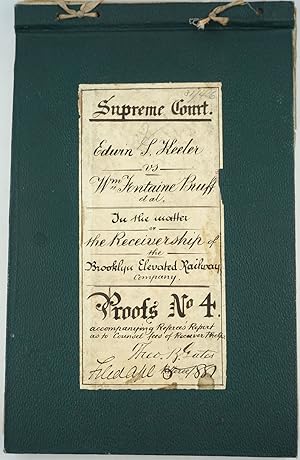 Supreme Court.
Edwin S. Keeler
vs
Wm Fontaine Bruff
et al.
In the matter
of
the Receivership of
the
Brooklyn Elevated Railway
Company.
Proofs No 4.
accompanying Referee's Report
as to Counsel fees of Receiver
Theo. B. Gates
Filed Apl